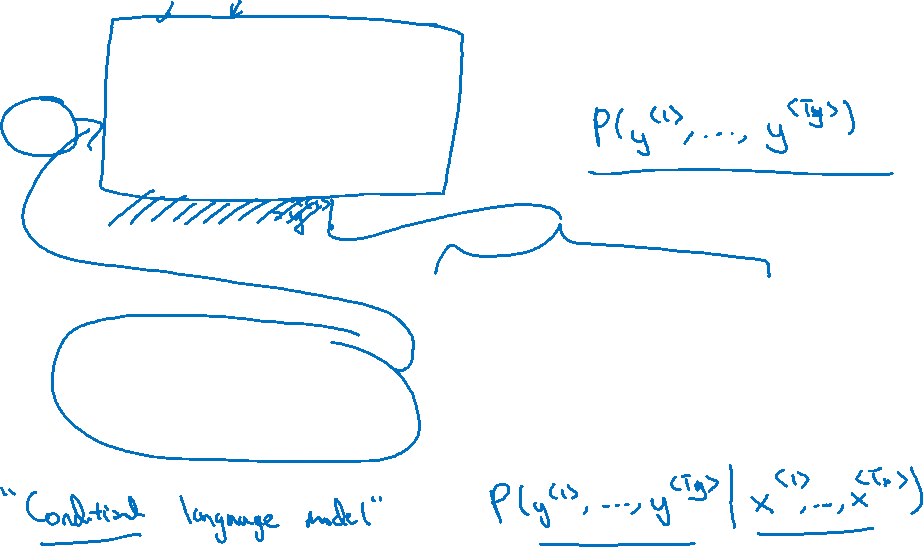 P(y<1>, ..., y<Ty>)
y<1>
"Conditional language model"
P(y<1>, ..., y<Ty> | x<1>, ..., x<Tx>)